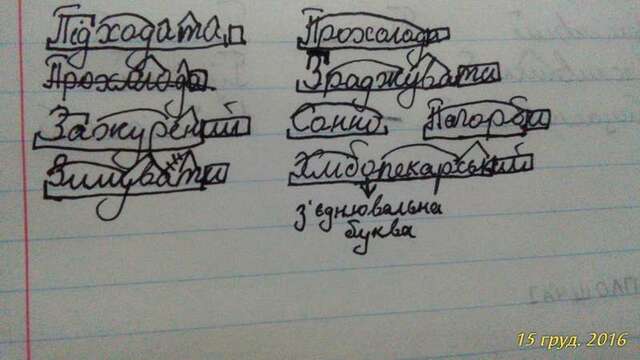 Підходата Прохолода
Прохолода Зраджувати
Зажурений Сонно Пагорби
Зимувати Хлібопекарський
з'єднювальна
буква
15 груд. 2016